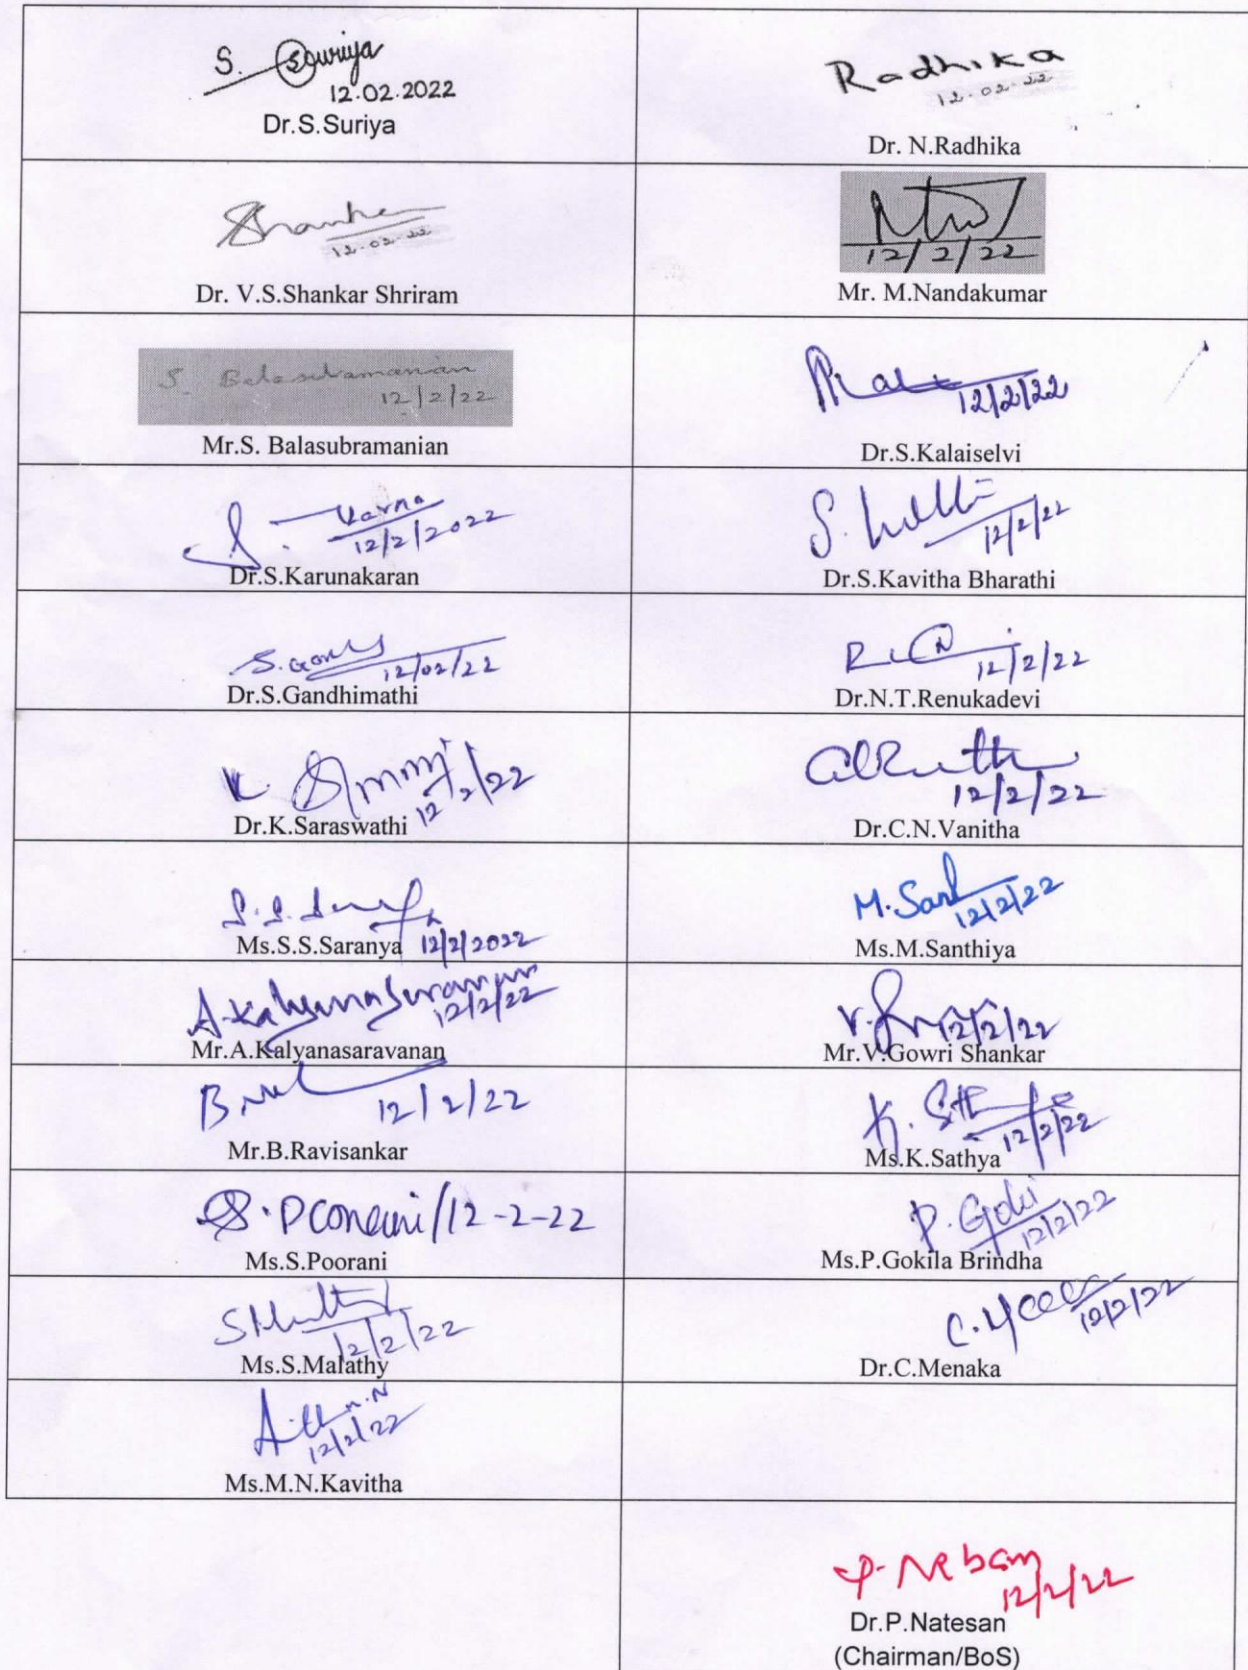 S. Suriya
12.02.2022
Dr.S.Suriya
Radhika
12.02.22
Dr. N.Radhika
12.02.22
Dr. V.S.Shankar Shriram
12/2/22
Mr. M.Nandakumar
S. Balasubramanian
12/2/22
Mr.S. Balasubramanian
12/2/22
Dr.S.Kalaiselvi
12/2/2022
Dr.S.Karunakaran
12/2/22
Dr.S.Kavitha Bharathi
12/02/22
Dr.S.Gandhimathi
12/2/22
Dr.N.T.Renukadevi
12/2/22
Dr.K.Saraswathi
12/2/22
Dr.C.N.Vanitha
12/2/2022
Ms.S.S.Saranya
12/2/22
Ms.M.Santhiya
12/2/22
Mr.A.Kalyanasaravanan
12/2/22
Mr.V.Gowri Shankar
12/2/22
Mr.B.Ravisankar
12/2/22
Ms.K.Sathya
/12-2-22
Ms.S.Poorani
12/2/22
Ms.P.Gokila Brindha
12/2/22
Ms.S.Malathy
12/2/22
Dr.C.Menaka
12/2/22
Ms.M.N.Kavitha
12/2/22
Dr.P.Natesan
(Chairman/BoS)